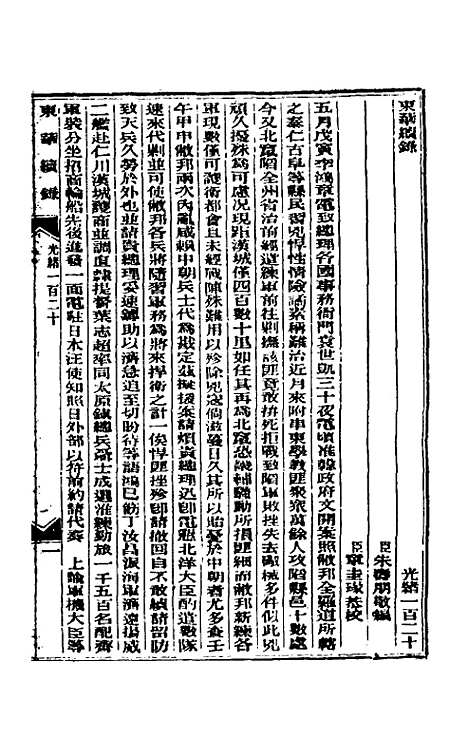 東華續錄
光緒一百二十
臣朱壽朋敬編
臣章圭瑑恭校
五月戊寅李鴻章電致總理各國事務衙門袁世凱三十夜電頃准韓政府文開案照敝邦全羅道所轄
之泰仁古阜等縣民習兇悍性情險譎素稱難治近月來附串東學教匪聚眾萬餘人攻陷縣邑十數處
今又北竄陷全州省治前經遣練軍前往剿撫該匪竟敢拚死拒戰致陷軍敗挫失去礮械多件似此兇
頑久擾殊為可慮況現距漢城僅四百數十里如任其再為北竄恐畿輔騷動所損匪細而敝邦新練各
軍現數僅可護衛都會且未經戰陣殊難用以殄除兇寇倘滋蔓日久其所以貽憂於中朝者尤多查壬
午甲申敝邦兩次內亂咸賴中朝兵士代為戡定茲擬援案請煩貴總理迅卽電懇北洋大臣酌遣數隊
速來代剿並可使敝邦各兵將隨習軍務為將來捍衛之計一俟悍匪挫殄卽請撤回自不敢續請留防
致天兵久勞於外也並請貴總理妥速籌助以濟急迫至切盼待等語鴻已飭丁汝昌派海軍濟遠揚威
二艦赴仁川漢城護商並調直隸提督葉志超率同太原鎮總兵聶士成選淮練勁旅一千五百名配齊
軍裝分坐招商輪船先後進發一面電駐日本汪使知照日外部以符前約請代奏　上諭軍機大臣等
東華續錄
光緒一百二十
一